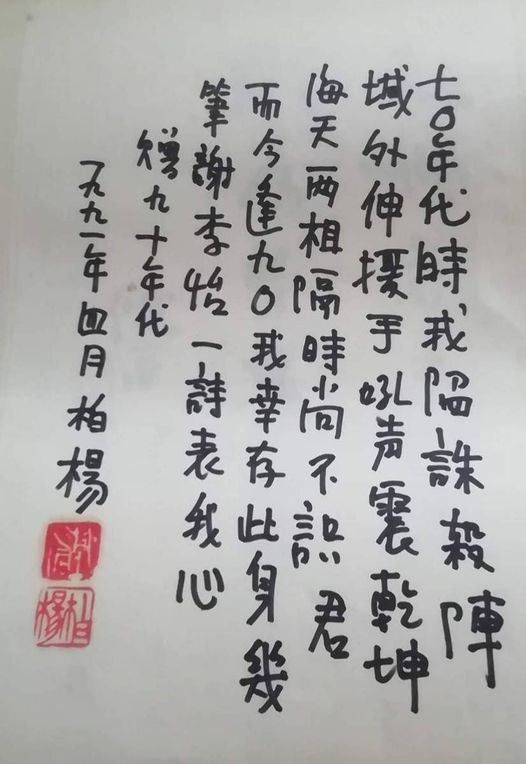 七〇年代時我陷誅殺陣
域外伸援手吼声震乾坤
海天兩相隔時尚不識君
而今逢九〇我幸存此身幾
筆謝李怡一詩表我心
贈九十年代
一九九一年四月柏楊
柏楊